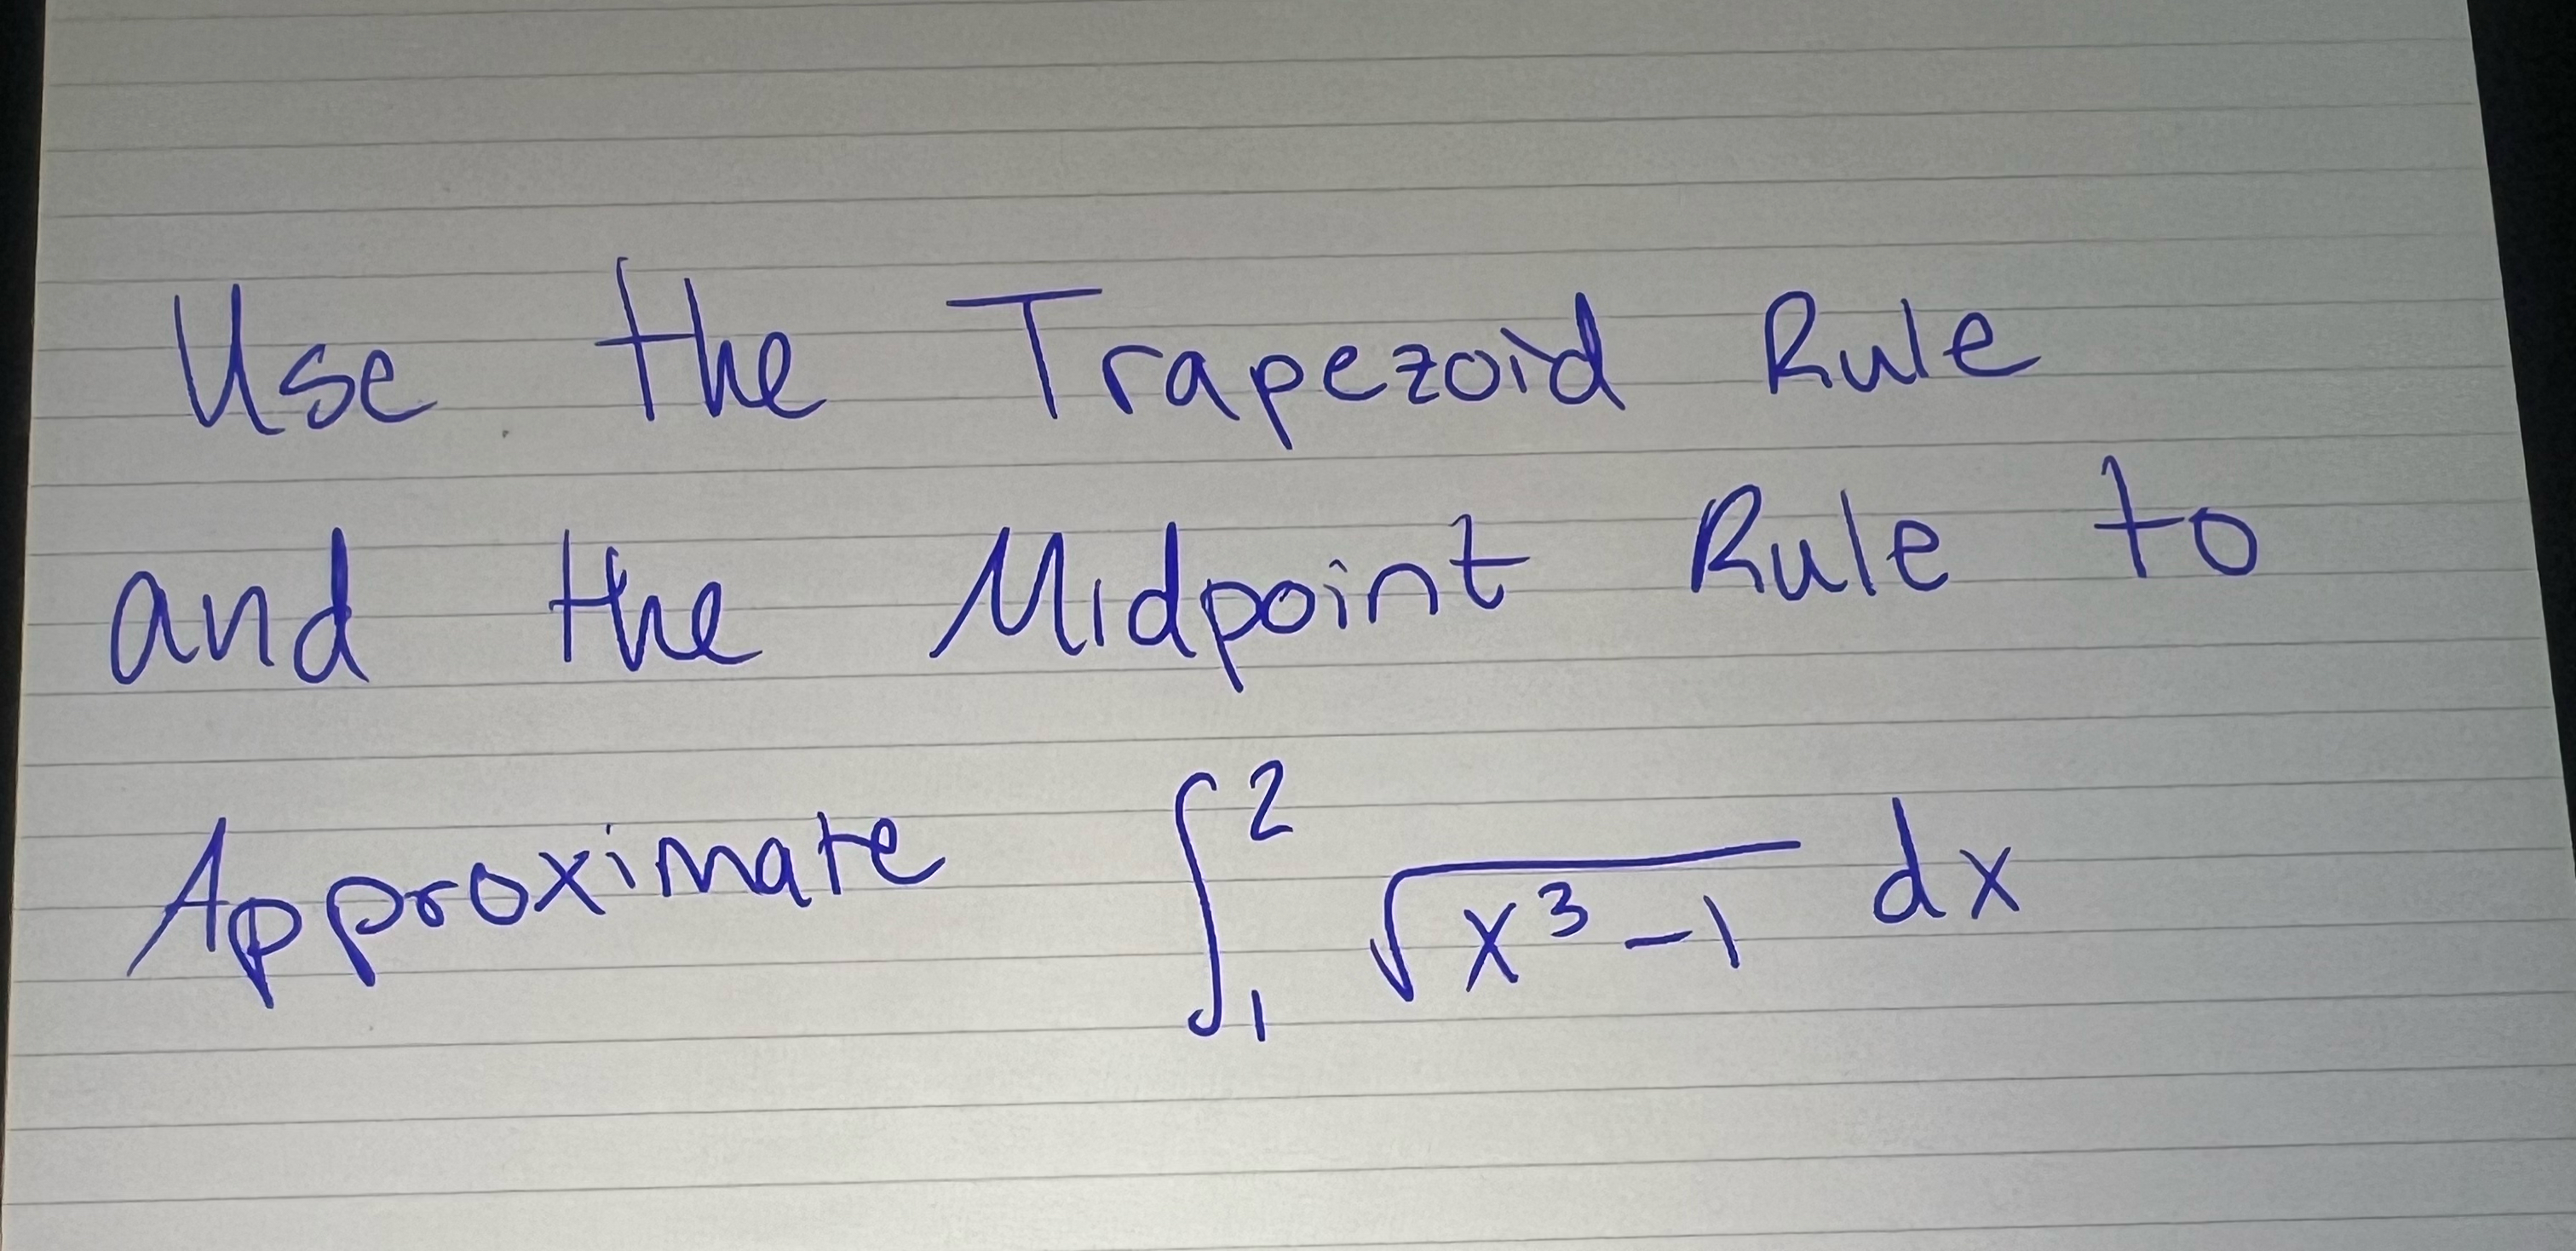 Use the Trapezoid Rule
and the Midpoint Rule to
Approximate ∫₁² √(x³-1) dx